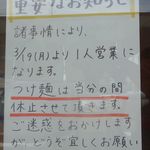 重要なお知らせ
諸事情により、
3/19(月)より1人営業に
なります。
つけ麺は当分の間
休止させて頂きます。
ご迷惑をおかけします
がどうぞ宜しくお願い